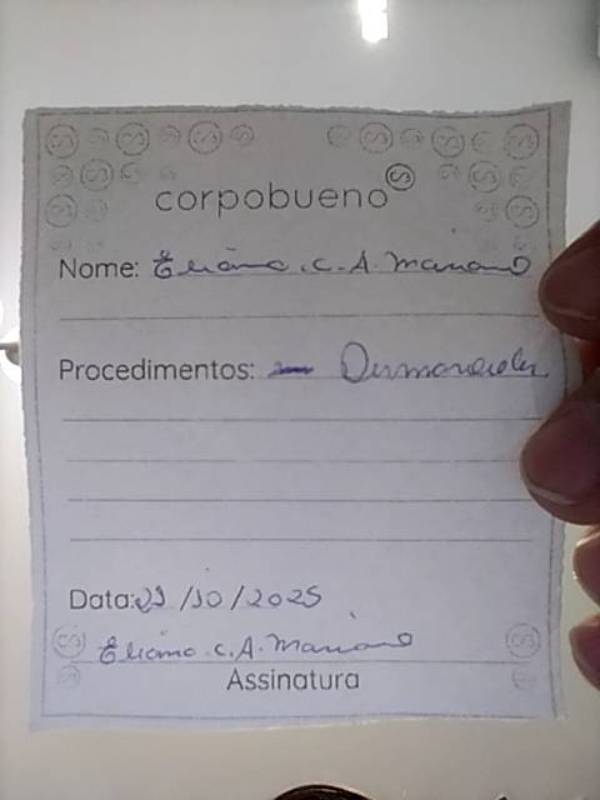 corpobueno
Nome: Eliana. C. A. Mariano
Procedimentos: Dermaroller
Data: /10/2025
Eliana. C. A. Mariano
Assinatura